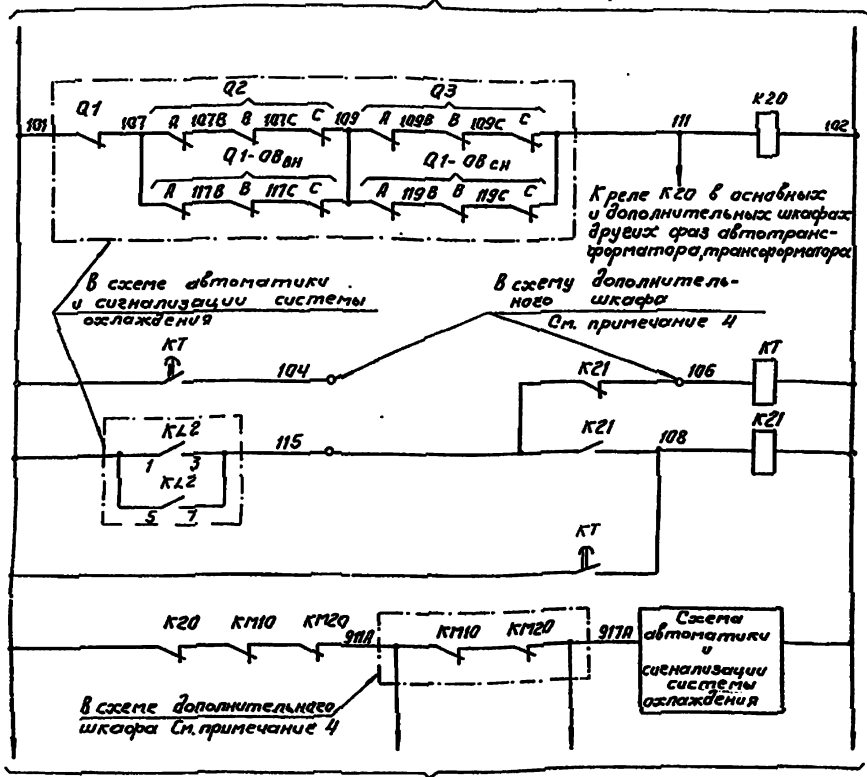 Q2 Q3
101 Q1 107 A 107В В 107С С 109 A 109В В 109С С 111 К20 102
Q1-ОВвн Q1-ОВсн
A 117В В 117С С A 119В В 119С С
К реле К20 в основных
и дополнительных шкафах
других фаз автотранс-
форматора, трансформатора
В схеме автоматики
и сигнализации системы
охлаждения
В схему дополнитель-
ного шкафа
См. примечание 4
КТ 104 К21 106 КТ
KL2 115 К21 108 К21
1 3
KL2
5 7
КТ
К20 КМ10 КМ20 911А КМ10 КМ20 917А
Схема
автоматики
и
сигнализации
системы
охлаждения
В схеме дополнительного
шкафа См. примечание 4